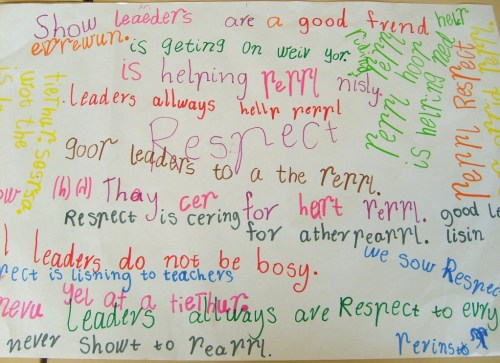 Show leaeders are a good frend
evrewun.
is geting on weiv yor.
is helping rerrl nisly.
leaders allways hellp rerrl
Respect
goor leaders to a the rerrl.
(h)(d) Thay cer for hert rerrl. good
Respect is cering for atherpearrl. lisin
leaders do not be bosy.
we sow Respec
rect is lisning to teachers
nevu yel at a tiethur.
leaders allways are Respect to evry
never showt to rearrl.
rerins
help
rerrl
rerrl hoor
is helring
need
rerrl Respect
tiethur. Sosrsa.
wot the
is